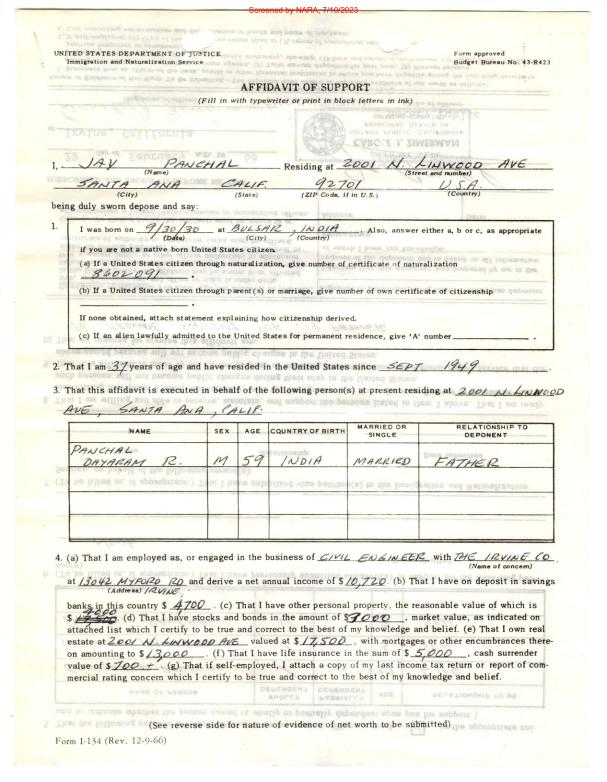 Screened by NARA, 7/10/2023
UNITED STATES DEPARTMENT OF JUSTICE
Immigration and Naturalization Service
Form approved
Budget Bureau No. 43-R423
AFFIDAVIT OF SUPPORT
(Fill in with typewriter or print in block letters in ink)
I, JAY PANCHAL Residing at 2001 N. LINWOOD AVE
(Name) (Street and number)
SANTA ANA CALIF. 92701 U.S.A.
(City) (State) (ZIP Code, if in U.S.) (Country)
being duly sworn depose and say:
1. I was born on 9/30/30 at BULSAR, INDIA. Also, answer either a, b or c, as appropriate
(Date) (City) (Country)
if you are not a native born United States citizen.
(a) If a United States citizen through naturalization, give number of certificate of naturalization
8602091.
(b) If a United States citizen through parent(s) or marriage, give number of own certificate of citizenship
If none obtained, attach statement explaining how citizenship derived.
(c) If an alien lawfully admitted to the United States for permanent residence, give 'A' number
2. That I am 37 years of age and have resided in the United States since SEPT. 1949
3. That this affidavit is executed in behalf of the following person(s) at present residing at 2001 N. LINWOOD
AVE, SANTA ANA, CALIF.
NAME SEX AGE COUNTRY OF BIRTH MARRIED OR SINGLE RELATIONSHIP TO DEPONENT
PANCHAL
DAYARAM R. M 59 INDIA MARRIED FATHER
4. (a) That I am employed as, or engaged in the business of CIVIL ENGINEER with THE IRVINE CO
(Name of concern)
at 13042 MYFORD RD and derive a net annual income of $10,720 (b) That I have on deposit in savings
(Address) IRVINE.
banks in this country $ 4700. (c) That I have other personal property, the reasonable value of which is
4000
$ 17,500. (d) That I have stocks and bonds in the amount of $3000, market value, as indicated on
attached list which I certify to be true and correct to the best of my knowledge and belief. (e) That I own real
estate at 2001 N. LINWOOD AVE valued at $17,500, with mortgages or other encumbrances there-
on amounting to $13000. (f) That I have life insurance in the sum of $5,000, cash surrender
value of $700 +. (g) That if self-employed, I attach a copy of my last income tax return or report of com-
mercial rating concern which I certify to be true and correct to the best of my knowledge and belief.
(See reverse side for nature of evidence of net worth to be submitted)
Form I-134 (Rev. 12-9-66)